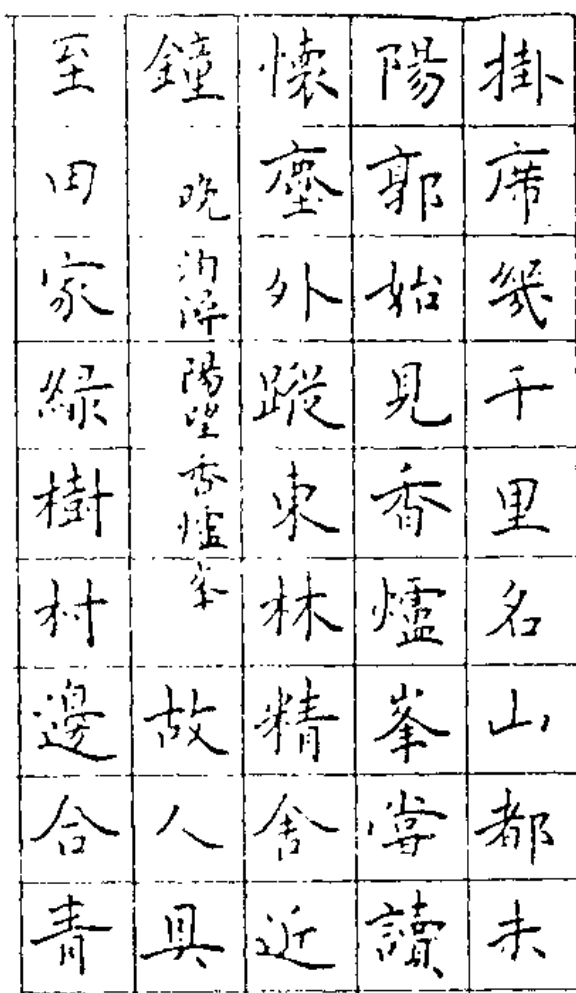 掛席幾千里名山都未
陽郭始見香爐峯嘗讀
懷塵外蹤東林精舍近
鐘 晚泊潯陽望香爐峯 故人具
至田家綠樹村邊合青